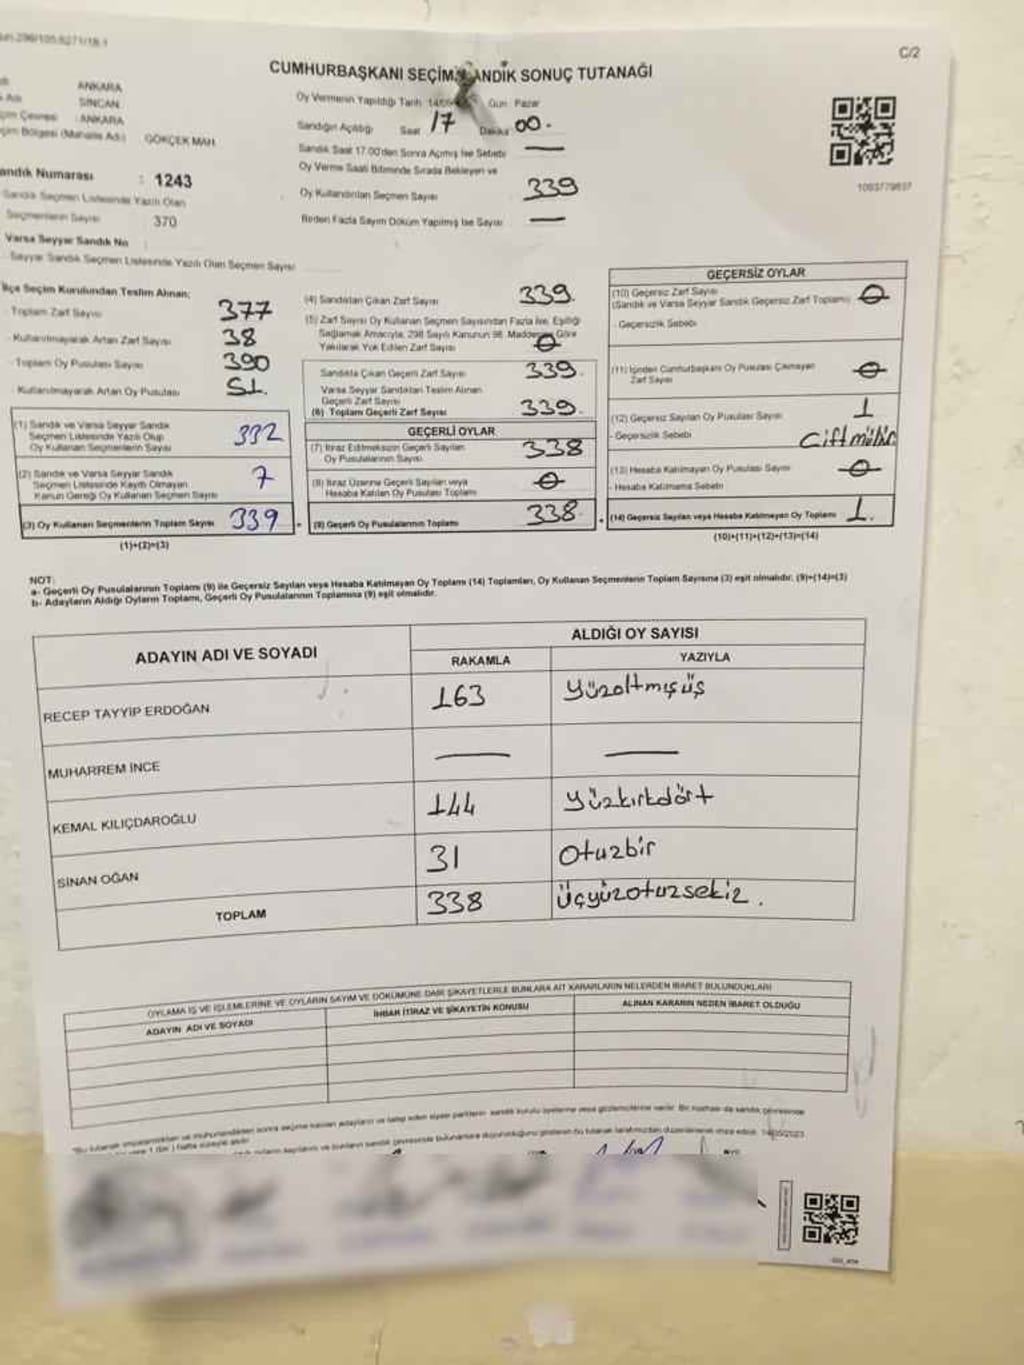 C/2
CUMHURBAŞKANI SEÇİMİ SANDIK SONUÇ TUTANAĞI
ANKARA
SİNCAN
ANKARA
GÖKÇEK MAH.
Sandık Numarası : 1243
Sandık Seçmen Listesinde Yazılı Olan
Seçmenlerin Sayısı 370
Varsa Seyyar Sandık No
Seyyar Sandık Seçmen Listesinde Yazılı Olan Seçmen Sayısı
Oy Vermenin Yapıldığı Tarih Gün Pazar
Sandığın Açıldığı Saat 17 Dakika 00.
Sandık Saat 17.00'den Sonra Açılmış İse Sebebi —
Oy Verme Saati Bitiminde Sırada Bekleyen ve
Oy Kullandırılan Seçmen Sayısı 339
Birden Fazla Sayım Döküm Yapılmış İse Sayısı —
1093779837
İlçe Seçim Kurulundan Teslim Alınan;
Toplam Zarf Sayısı 377
Kullanılmayarak Artan Zarf Sayısı 38
Toplam Oy Pusulası Sayısı 390
Kullanılmayarak Artan Oy Pusulası 51.
(1) Sandık ve Varsa Seyyar Sandık
Seçmen Listesinde Yazılı Olup
Oy Kullanan Seçmenlerin Sayısı 332
(2) Sandık ve Varsa Seyyar Sandık
Seçmen Listesinde Kayıtlı Olmayan
Kanun Gereği Oy Kullanan Seçmen Sayısı 7
(3) Oy Kullanan Seçmenlerin Toplam Sayısı 339
(1)+(2)=(3)
(4) Sandıktan Çıkan Zarf Sayısı 339.
(5) Zarf Sayısı Oy Kullanan Seçmen Sayısından Fazla İse, Eşitliği
Sağlamak Amacıyla, 298 Sayılı Kanunun 98. Maddesine Göre
Yakılarak Yok Edilen Zarf Sayısı 0
Sandıkta Çıkan Geçerli Zarf Sayısı 339.
Varsa Seyyar Sandıktan Teslim Alınan
Geçerli Zarf Sayısı
(6) Toplam Geçerli Zarf Sayısı 339.
GEÇERLİ OYLAR
(7) İtiraz Edilmeksizin Geçerli Sayılan
Oy Pusulalarının Sayısı 338
(8) İtiraz Üzerine Geçerli Sayılan veya
Hesaba Katılan Oy Pusulası Toplamı 0
(9) Geçerli Oy Pusulalarının Toplamı 338.
GEÇERSİZ OYLAR
(10) Geçersiz Zarf Sayısı
(Sandık ve Varsa Seyyar Sandık Geçersiz Zarf Toplamı) 0
- Geçersizlik Sebebi
(11) İçinden Cumhurbaşkanı Oy Pusulası Çıkmayan
Zarf Sayısı 0
(12) Geçersiz Sayılan Oy Pusulası Sayısı 1
- Geçersizlik Sebebi Çift mühür
(13) Hesaba Katılmayan Oy Pusulası Sayısı 0
- Hesaba Katılmama Sebebi
(14) Geçersiz Sayılan veya Hesaba Katılmayan Oy Toplamı 1.
(10)+(11)+(12)+(13)=(14)
NOT:
a- Geçerli Oy Pusulalarının Toplamı (9) ile Geçersiz Sayılan veya Hesaba Katılmayan Oy Toplamı (14) Toplamları, Oy Kullanan Seçmenlerin Toplam Sayısına (3) eşit olmalıdır. (9)+(14)=(3)
b- Adayların Aldığı Oyların Toplamı, Geçerli Oy Pusulalarının Toplamına (9) eşit olmalıdır.
ADAYIN ADI VE SOYADI
ALDIĞI OY SAYISI
RAKAMLA YAZIYLA
RECEP TAYYİP ERDOĞAN 163 Yüzaltmışüş
MUHARREM İNCE — —
KEMAL KILIÇDAROĞLU 144 Yüzkırkdört
SİNAN OĞAN 31 Otuzbir
TOPLAM 338 Üçyüzotuzsekiz.
OYLAMA İŞ VE İŞLEMLERİNE VE OYLARIN SAYIM VE DÖKÜMÜNE DAİR ŞİKAYETLERLE BUNLARA AİT KARARLARIN NELERDEN İBARET BULUNDUKLARI
ADAYIN ADI VE SOYADI
İHBAR İTİRAZ VE ŞİKAYETİN KONUSU
ALINAN KARARIN NEDEN İBARET OLDUĞU